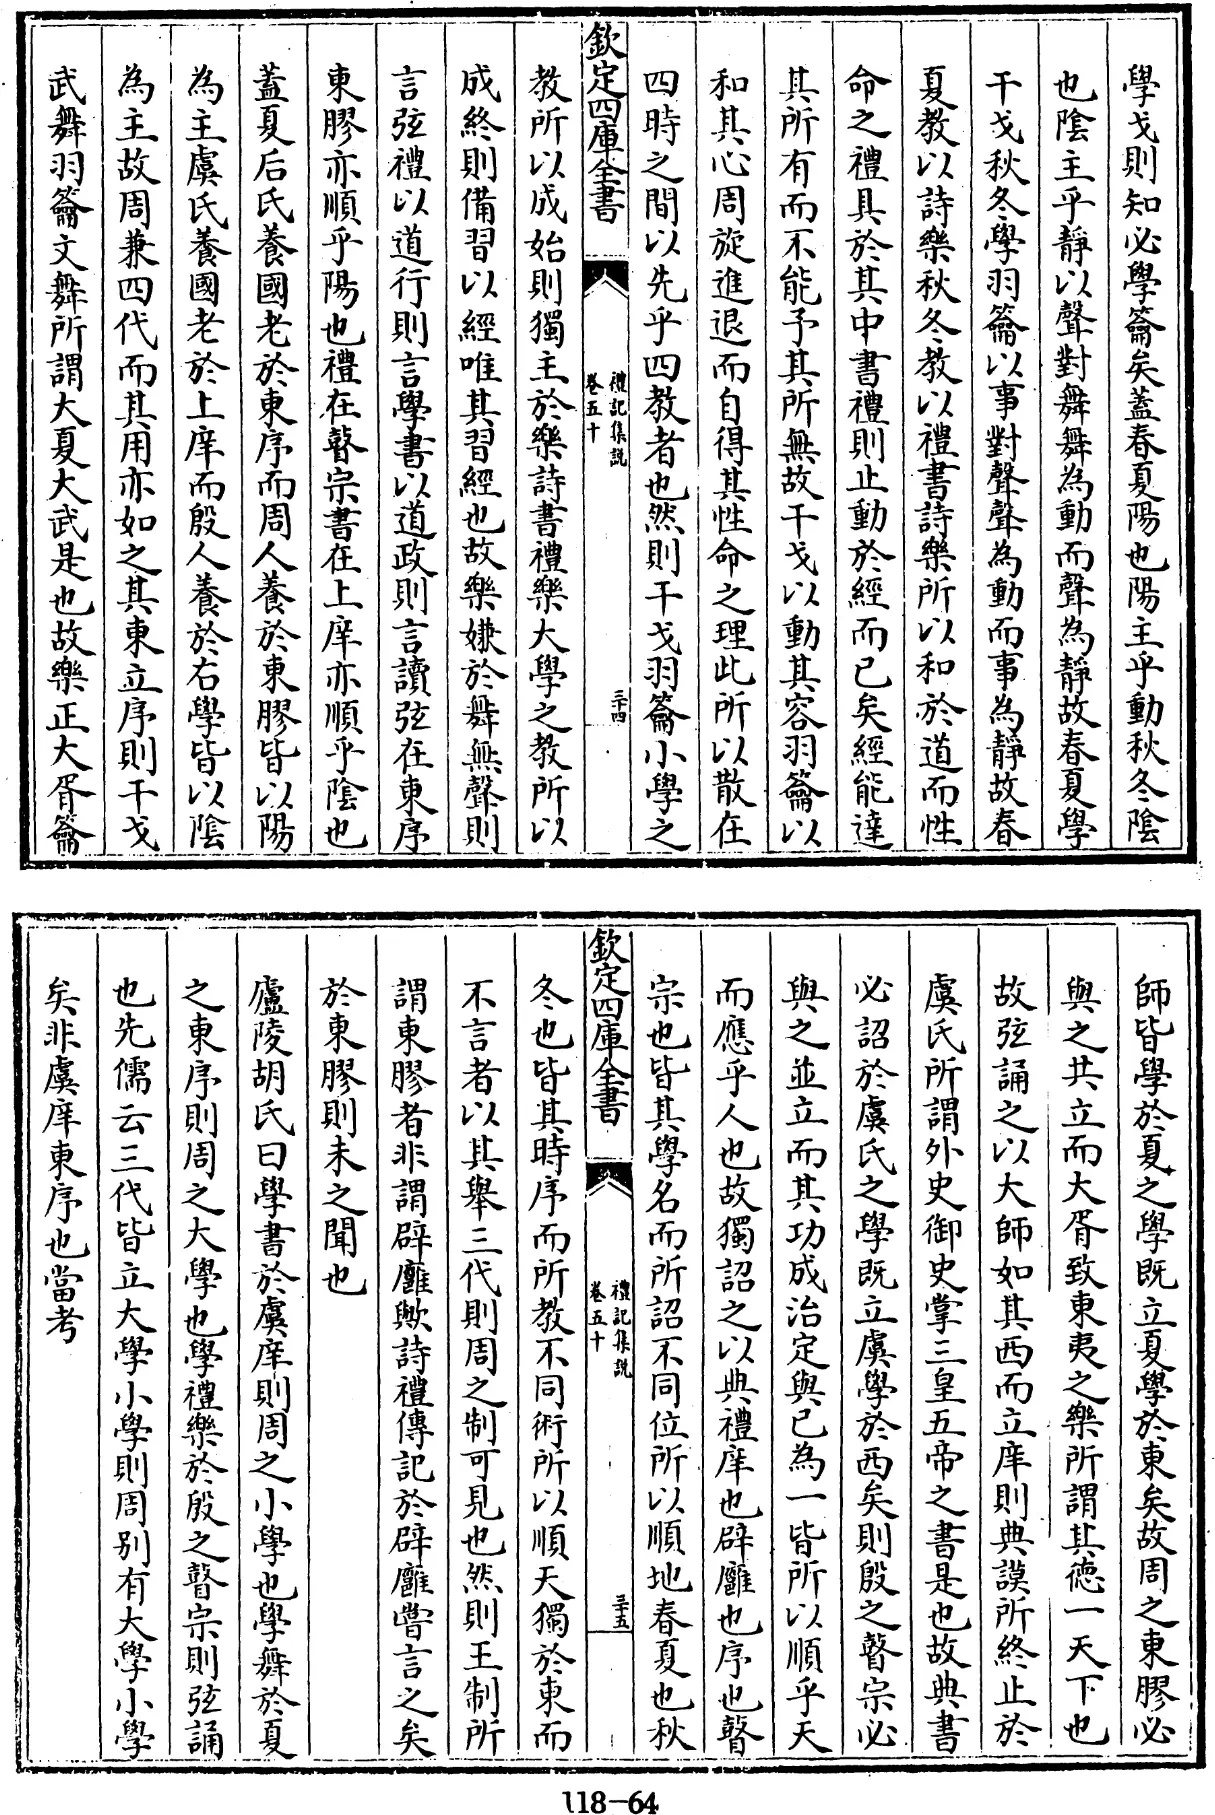 學戈則知必學籥矣蓋春夏陽也陽主乎動秋冬陰
也陰主乎靜以聲對舞舞為動而聲為靜故春夏學
干戈秋冬學羽籥以事對聲聲為動而事為靜故春
夏教以詩樂秋冬教以禮書詩樂所以和於道而性
命之禮具於其中書禮則止動於經而已矣經能達
其所有而不能予其所無故干戈以動其容羽籥以
和其心周旋進退而自得其性命之理此所以散在
四時之間以先乎四教者也然則干戈羽籥小學之
欽定四庫全書
禮記集說
卷五十
三十四
教所以成始則獨主於樂詩書禮樂大學之教所以
成終則備習以經唯其習經也故樂嫌於舞無聲則
言弦禮以道行則言學書以道政則言讀弦在東序
東膠亦順乎陽也禮在瞽宗書在上庠亦順乎陰也
蓋夏后氏養國老於東序而周人養於東膠皆以陽
為主虞氏養國老於上庠而殷人養於右學皆以陰
為主故周兼四代而其用亦如之其東立序則干戈
武舞羽籥文舞所謂大夏大武是也故樂正大胥籥
師皆學於夏之學既立夏學於東矣故周之東膠必
與之共立而大胥致東夷之樂所謂其德一天下也
故弦誦之以大師如其西而立庠則典謨所終止於
虞氏所謂外史御史掌三皇五帝之書是也故典書
必詔於虞氏之學既立虞學於西矣則殷之瞽宗必
與之並立而其功成治定與已為一皆所以順乎天
而應乎人也故獨詔之以典禮庠也辟廱也序也瞽
宗也皆其學名而所詔不同位所以順地春夏也秋
欽定四庫全書
禮記集說
卷五十
三十五
冬也皆其時序而所教不同術所以順天獨於東而
不言者以其舉三代則周之制可見也然則王制所
謂東膠者非謂辟廱歟詩禮傳記於辟廱嘗言之矣
於東膠則未之聞也
廬陵胡氏曰學書於虞庠則周之小學也學舞於夏
之東序則周之大學也學禮樂於殷之瞽宗則弦誦
也先儒云三代皆立大學小學則周別有大學小學
矣非虞庠東序也當考
118-64